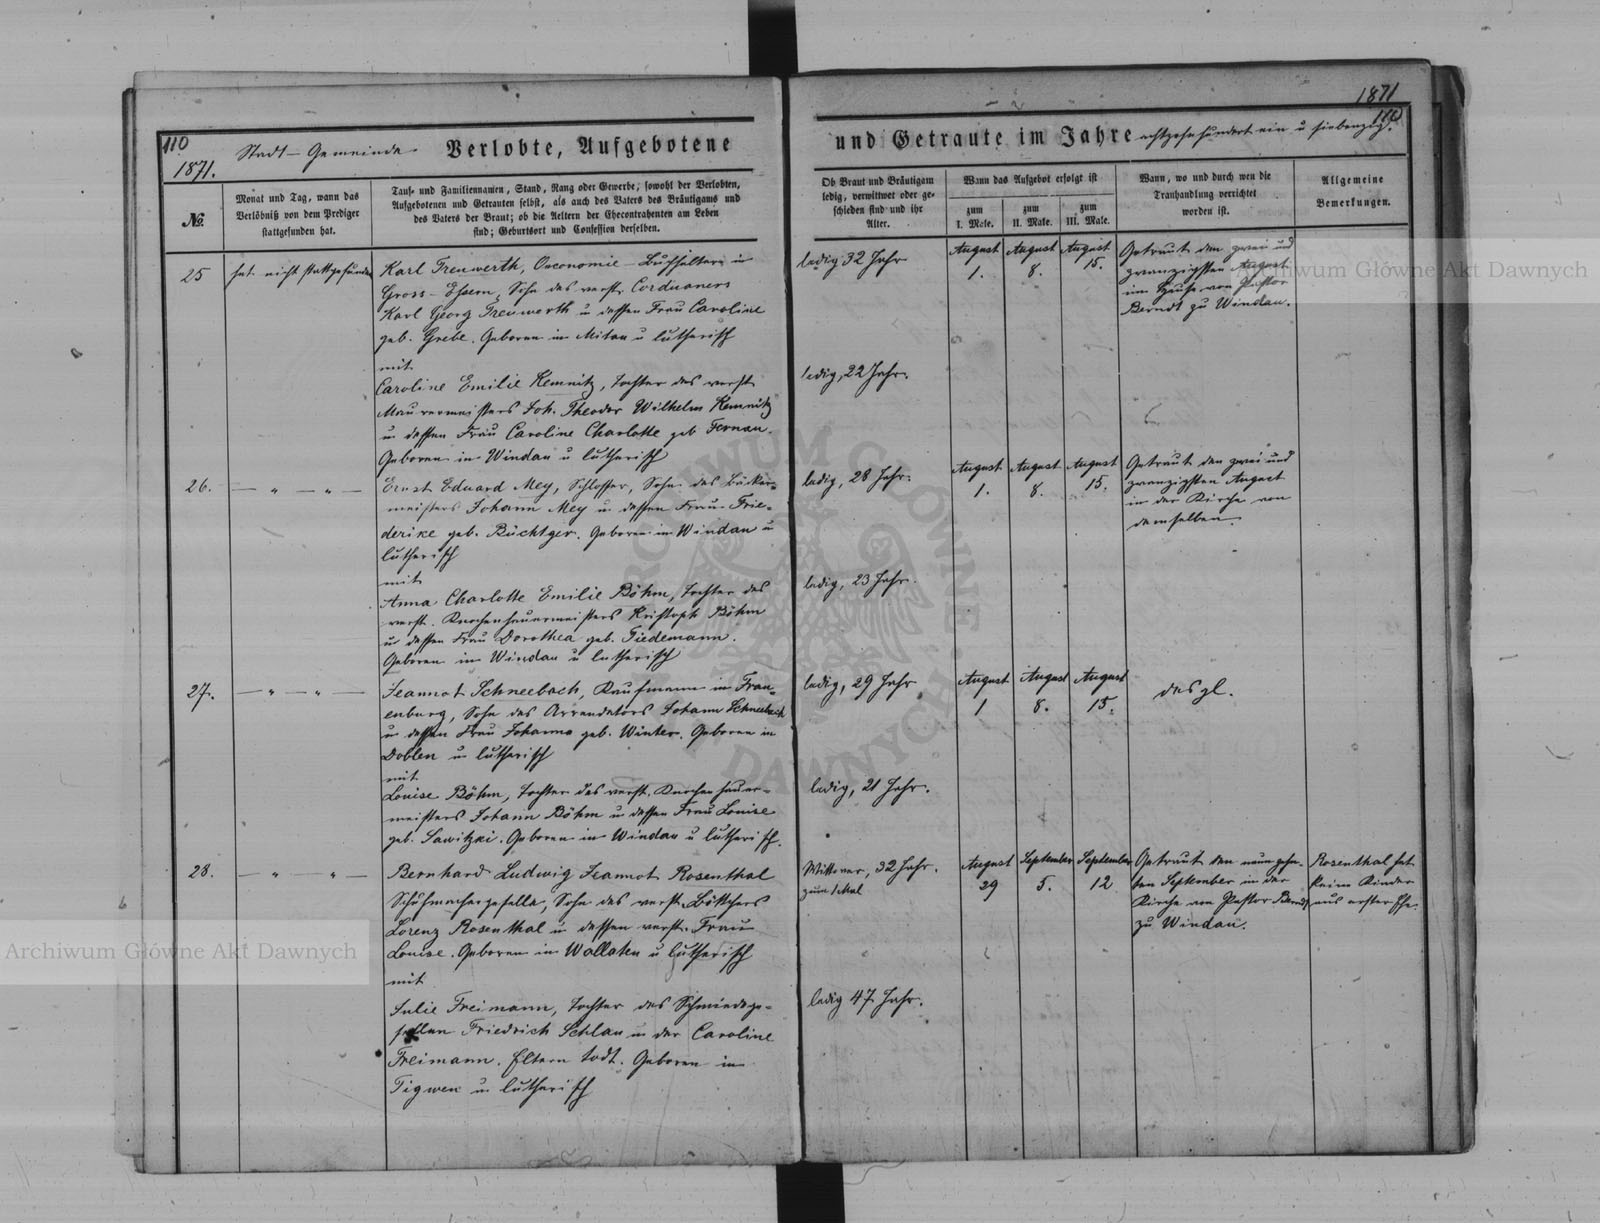 110
1871.
Stadt-Gemeinde
Verlobte, Aufgebotene
№
Monat und Tag, wann das
Verlöbniß von dem Prediger
stattgefunden hat.
Tauf- und Familiennamen, Stand, Rang oder Gewerbe, sowohl der Verlobten,
Aufgebotenen und Getrauten selbst, als auch des Vaters des Bräutigams und
des Vaters der Braut; ob die Aeltern der Ehecontrahenten am Leben
sind; Geburtsort und Confession derselben.
25
hat nicht stattgefunden
Karl Treuwerth, Oeconomie-Buchhalter in
Gross-Essern, Sohn des verst. Corduaners
Karl Georg Treuwerth u dessen Frau Caroline
geb. Grebe. Geboren in Mitau u lutherisch
mit
Caroline Emilie Kemnitz, Tochter des verst
Maurermeisters Joh. Theodor Wilhelm Kemnitz
u dessen Frau Caroline Charlotte geb Fernau.
Geboren in Windau u lutherisch
26.
— „ — „ —
Ernst Eduard Mey, Schlosser, Sohn des Bäcker-
meisters Johann Mey u dessen Frau Frie-
derike geb. Büchtger. Geboren in Windau u
lutherisch
mit
Anna Charlotte Emilie Böhm, Tochter des
verst. Knochenhauermeisters Kristoph Böhm
u dessen Frau Dorothea geb. Tiedemann.
Geboren in Windau u lutherisch
27.
— „ — „ —
Jeannot Schneebach, Kaufmann in Frau-
enburg, Sohn des Arrendators Johann Schneebach
u dessen Frau Johanna geb. Winter. Geboren in
Doblen u lutherisch
mit
Louise Böhm, Tochter des verst. Knochenhauer-
meisters Johann Böhm u dessen Frau Louise
geb. Sawitzki. Geboren in Windau u lutherisch.
28.
— „ — „ —
Bernhard Ludwig Jeannot Rosenthal
Schuhmachergeselle, Sohn des verst. Böttchers
Lorenz Rosenthal u dessen verst. Frau
Louise. Geboren in Wallaten u lutherisch
mit
Julie Freimann, Tochter des Schmiedege-
sellen Friedrich Schlau u der Caroline
Freimann. Eltern todt. Geboren in
Tigwen u lutherisch
1871
110
und Getraute im Jahre achtzehnhundert ein u siebenzig.
Ob Braut und Bräutigam
ledig, verwittwet oder ge-
schieden sind und ihr
Alter.
Wann das Aufgebot erfolgt ist
zum
I. Male.
zum
II. Male.
zum
III. Male.
Wann, wo und durch wen die
Trauhandlung verrichtet
worden ist.
Allgemeine
Bemerkungen.
ledig 32 Jahr
August
1.
August
8.
August
15.
Getraut den zwei und
zwanzigsten August
im Hause von Pastor
Berndt zu Windau.
ledig, 22 Jahr.
ledig, 28 Jahr.
August
1.
August
8.
August
15.
Getraut den zwei und
zwanzigsten August
in der Kirche von
demselben
ledig, 23 Jahr.
ledig, 29 Jahr
August
1
August
8.
August
15.
desgl.
ledig, 21 Jahr.
Wittwer, 32 Jahr.
zum 1 Mal
August
29
September
5.
September
12
Getraut den neunzehn-
ten September in der
Kirche von Pastor Berndt
zu Windau.
Rosenthal hat
keine Kinder
aus erster Ehe.
ledig 47 Jahr.
Archiwum Główne Akt Dawnych
Archiwum Główne Akt Dawnych
ARCHIWUM GŁÓWNE AKT DAWNYCH